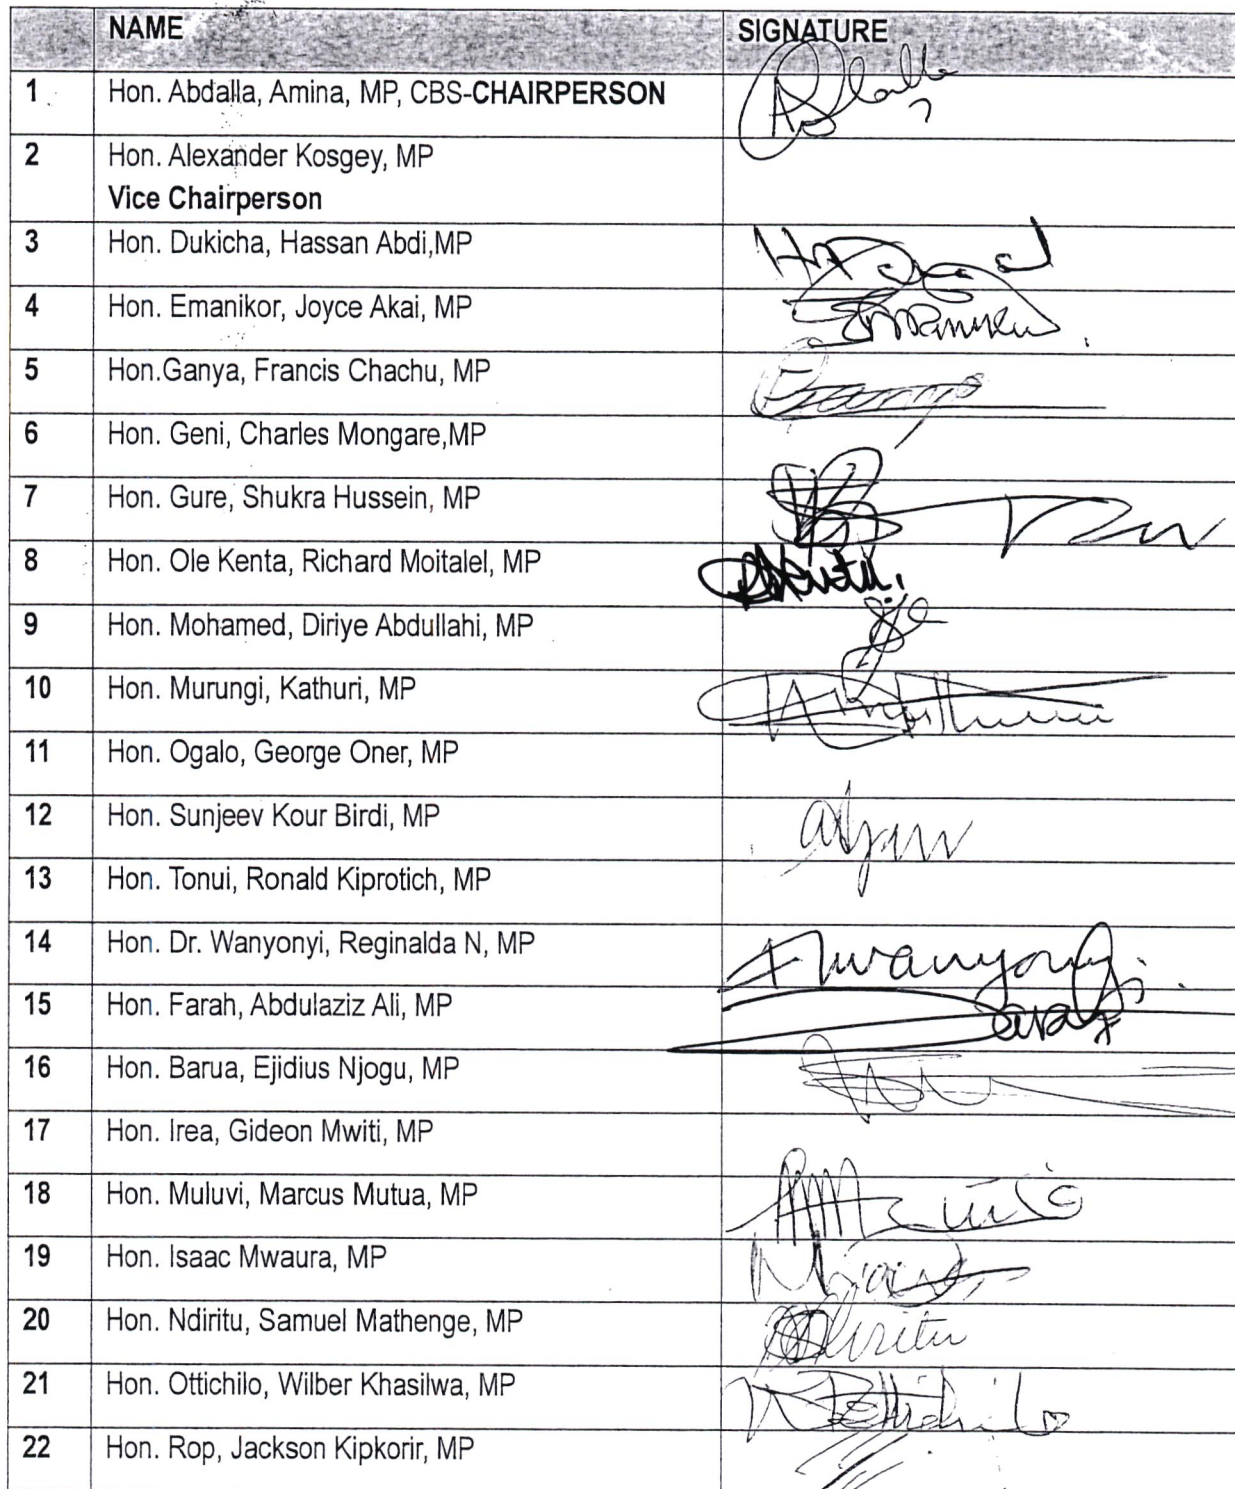 NAME SIGNATURE
1 Hon. Abdalla, Amina, MP, CBS-CHAIRPERSON
2 Hon. Alexander Kosgey, MP
Vice Chairperson
3 Hon. Dukicha, Hassan Abdi,MP
4 Hon. Emanikor, Joyce Akai, MP
5 Hon.Ganya, Francis Chachu, MP
6 Hon. Geni, Charles Mongare,MP
7 Hon. Gure, Shukra Hussein, MP
8 Hon. Ole Kenta, Richard Moitalel, MP
9 Hon. Mohamed, Diriye Abdullahi, MP
10 Hon. Murungi, Kathuri, MP
11 Hon. Ogalo, George Oner, MP
12 Hon. Sunjeev Kour Birdi, MP
13 Hon. Tonui, Ronald Kiprotich, MP
14 Hon. Dr. Wanyonyi, Reginalda N, MP
15 Hon. Farah, Abdulaziz Ali, MP
16 Hon. Barua, Ejidius Njogu, MP
17 Hon. Irea, Gideon Mwiti, MP
18 Hon. Muluvi, Marcus Mutua, MP
19 Hon. Isaac Mwaura, MP
20 Hon. Ndiritu, Samuel Mathenge, MP
21 Hon. Ottichilo, Wilber Khasilwa, MP
22 Hon. Rop, Jackson Kipkorir, MP